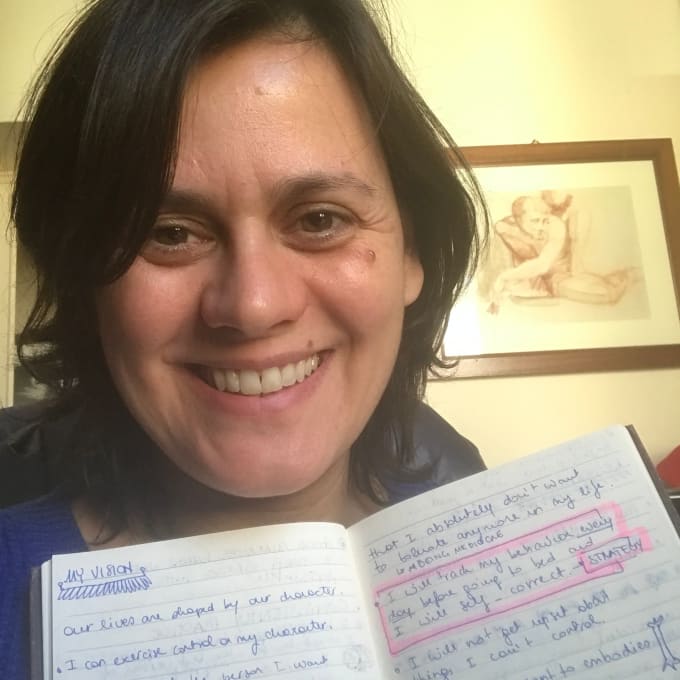 MY VISION
Our lives are shaped by our character.
• I can exercise control on my character.
person I want
that I absolutely don't want
to tolerate anymore in my life.
MEDICINE
• I will track my behavior every
day before going to bed and
I will self-correct. → STRATEGY
• I will not get upset about
things I can't control.
want to embodies